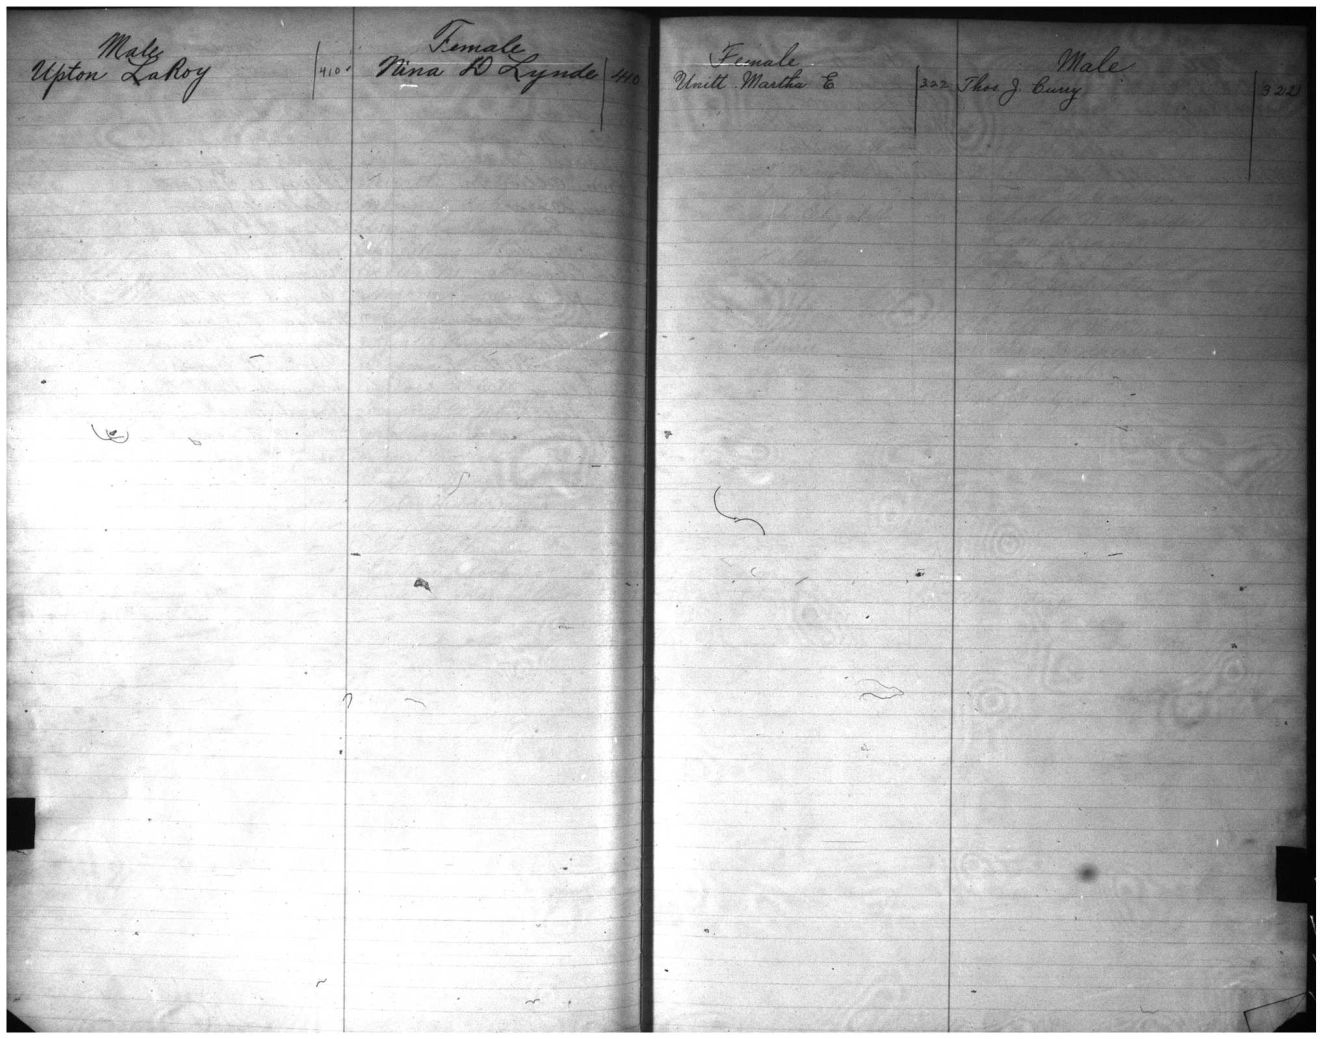 Male Female
Upton LaRoy 410 Nina D Lynde 410
Female Male
Unitt Martha E 322 Thos J. Curry 322